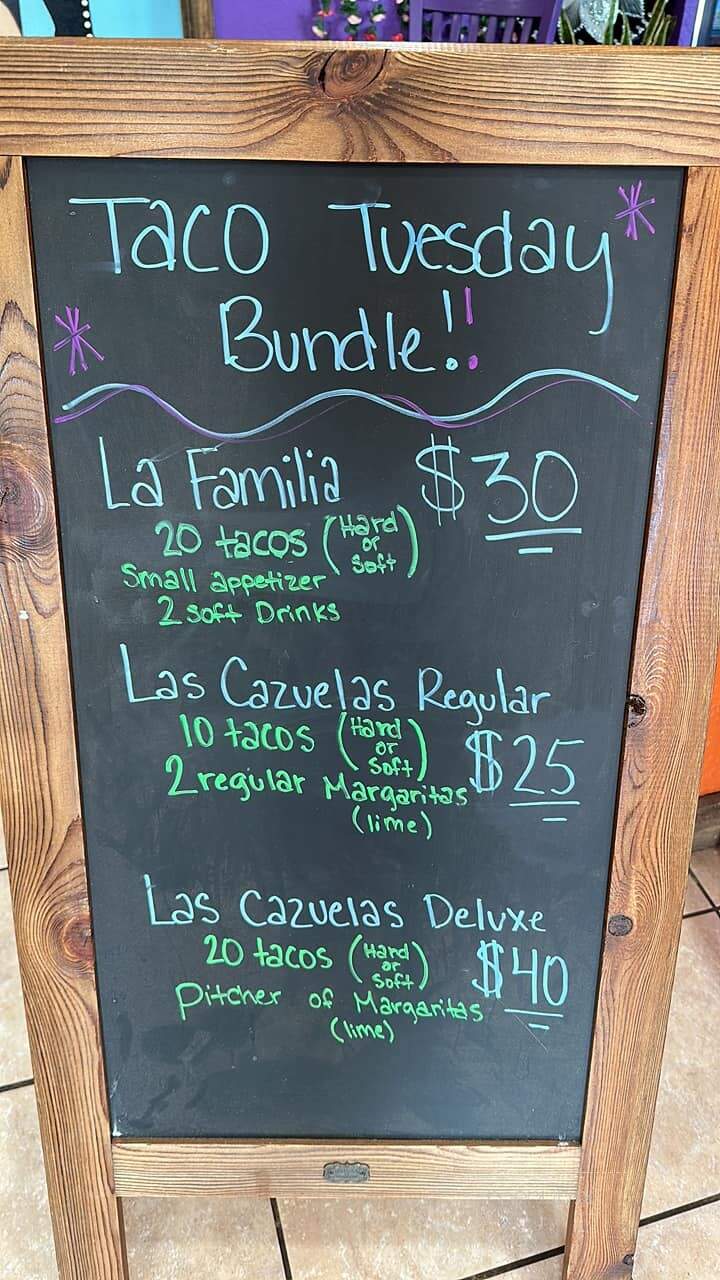 Taco Tuesday
Bundle!!
La Familia $30
20 tacos (Hard or Soft)
Small appetizer
2 Soft Drinks
Las Cazuelas Regular
10 tacos (Hard or Soft) $25
2 regular Margaritas
(lime)
Las Cazuelas Deluxe
20 tacos (Hard or Soft) $40
Pitcher of Margaritas
(lime)